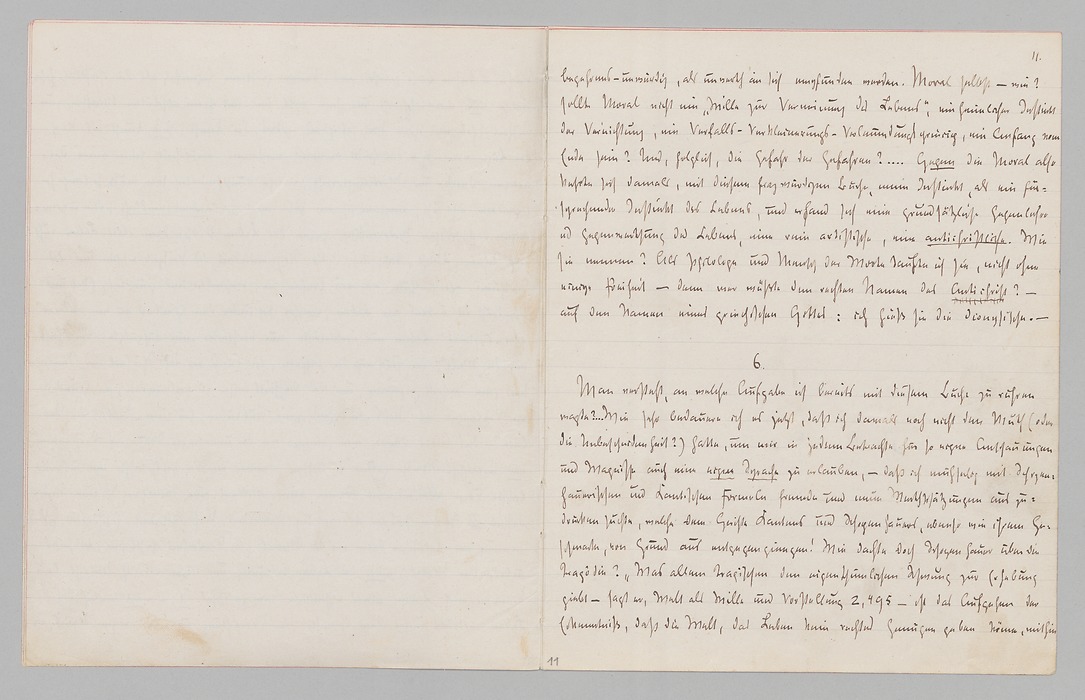 11.
begehrens-unwürdig, als unwerth an sich empfunden werden. Moral selbst — wie?
sollte Moral nicht ein „Wille zur Verneinung des Lebens“, ein heimlicher Instinkt
der Vernichtung, ein Verfalls- Verkleinerungs- Verleumdungsprincip, ein Anfang vom
Ende sein? Und, folglich, die Gefahr der Gefahren?.... Gegen die Moral also
kehrte sich damals, mit diesem fragwürdigen Buche, mein Instinkt, als ein für-
sprechender Instinkt des Lebens, und erfand sich eine grundsätzliche Gegenlehre
und Gegenwerthung des Lebens, eine rein artistische, eine antichristliche. Wie
sie nennen? Als Philologe und Mensch der Worte taufte ich sie, nicht ohne
einige Freiheit — denn wer wüßte den rechten Namen des Antichrist? —
auf den Namen eines griechischen Gottes: ich hieß sie die dionysische. —
6.
Man versteht, an welche Aufgabe ich bereits mit diesem Buche zu rühren
wagte?... Wie sehr bedauere ich es jetzt, daß ich damals noch nicht den Muth (oder
die Unbescheidenheit?) hatte, um mir in jedem Betrachte für so eigne Anschauungen
und Wagnisse auch eine eigne Sprache zu erlauben, — daß ich mühselig mit Schopen-
hauerischen und Kantischen Formeln fremde und neue Werthschätzungen auszu-
drücken suchte, welche dem Geiste Kantens und Schopenhauers, ebenso wie ihrem Ge-
schmacke, von Grund aus entgegen giengen! Wie dachte doch Schopenhauer über die
Tragödie? „Was allem Tragischen den eigenthümlichen Schwung zur Erhebung
giebt — sagt er, Welt als Wille und Vorstellung 2, 495 — ist das Aufgehen der
Erkenntniß, daß die Welt, das Leben kein rechtes Genügen geben könne, mithin
11